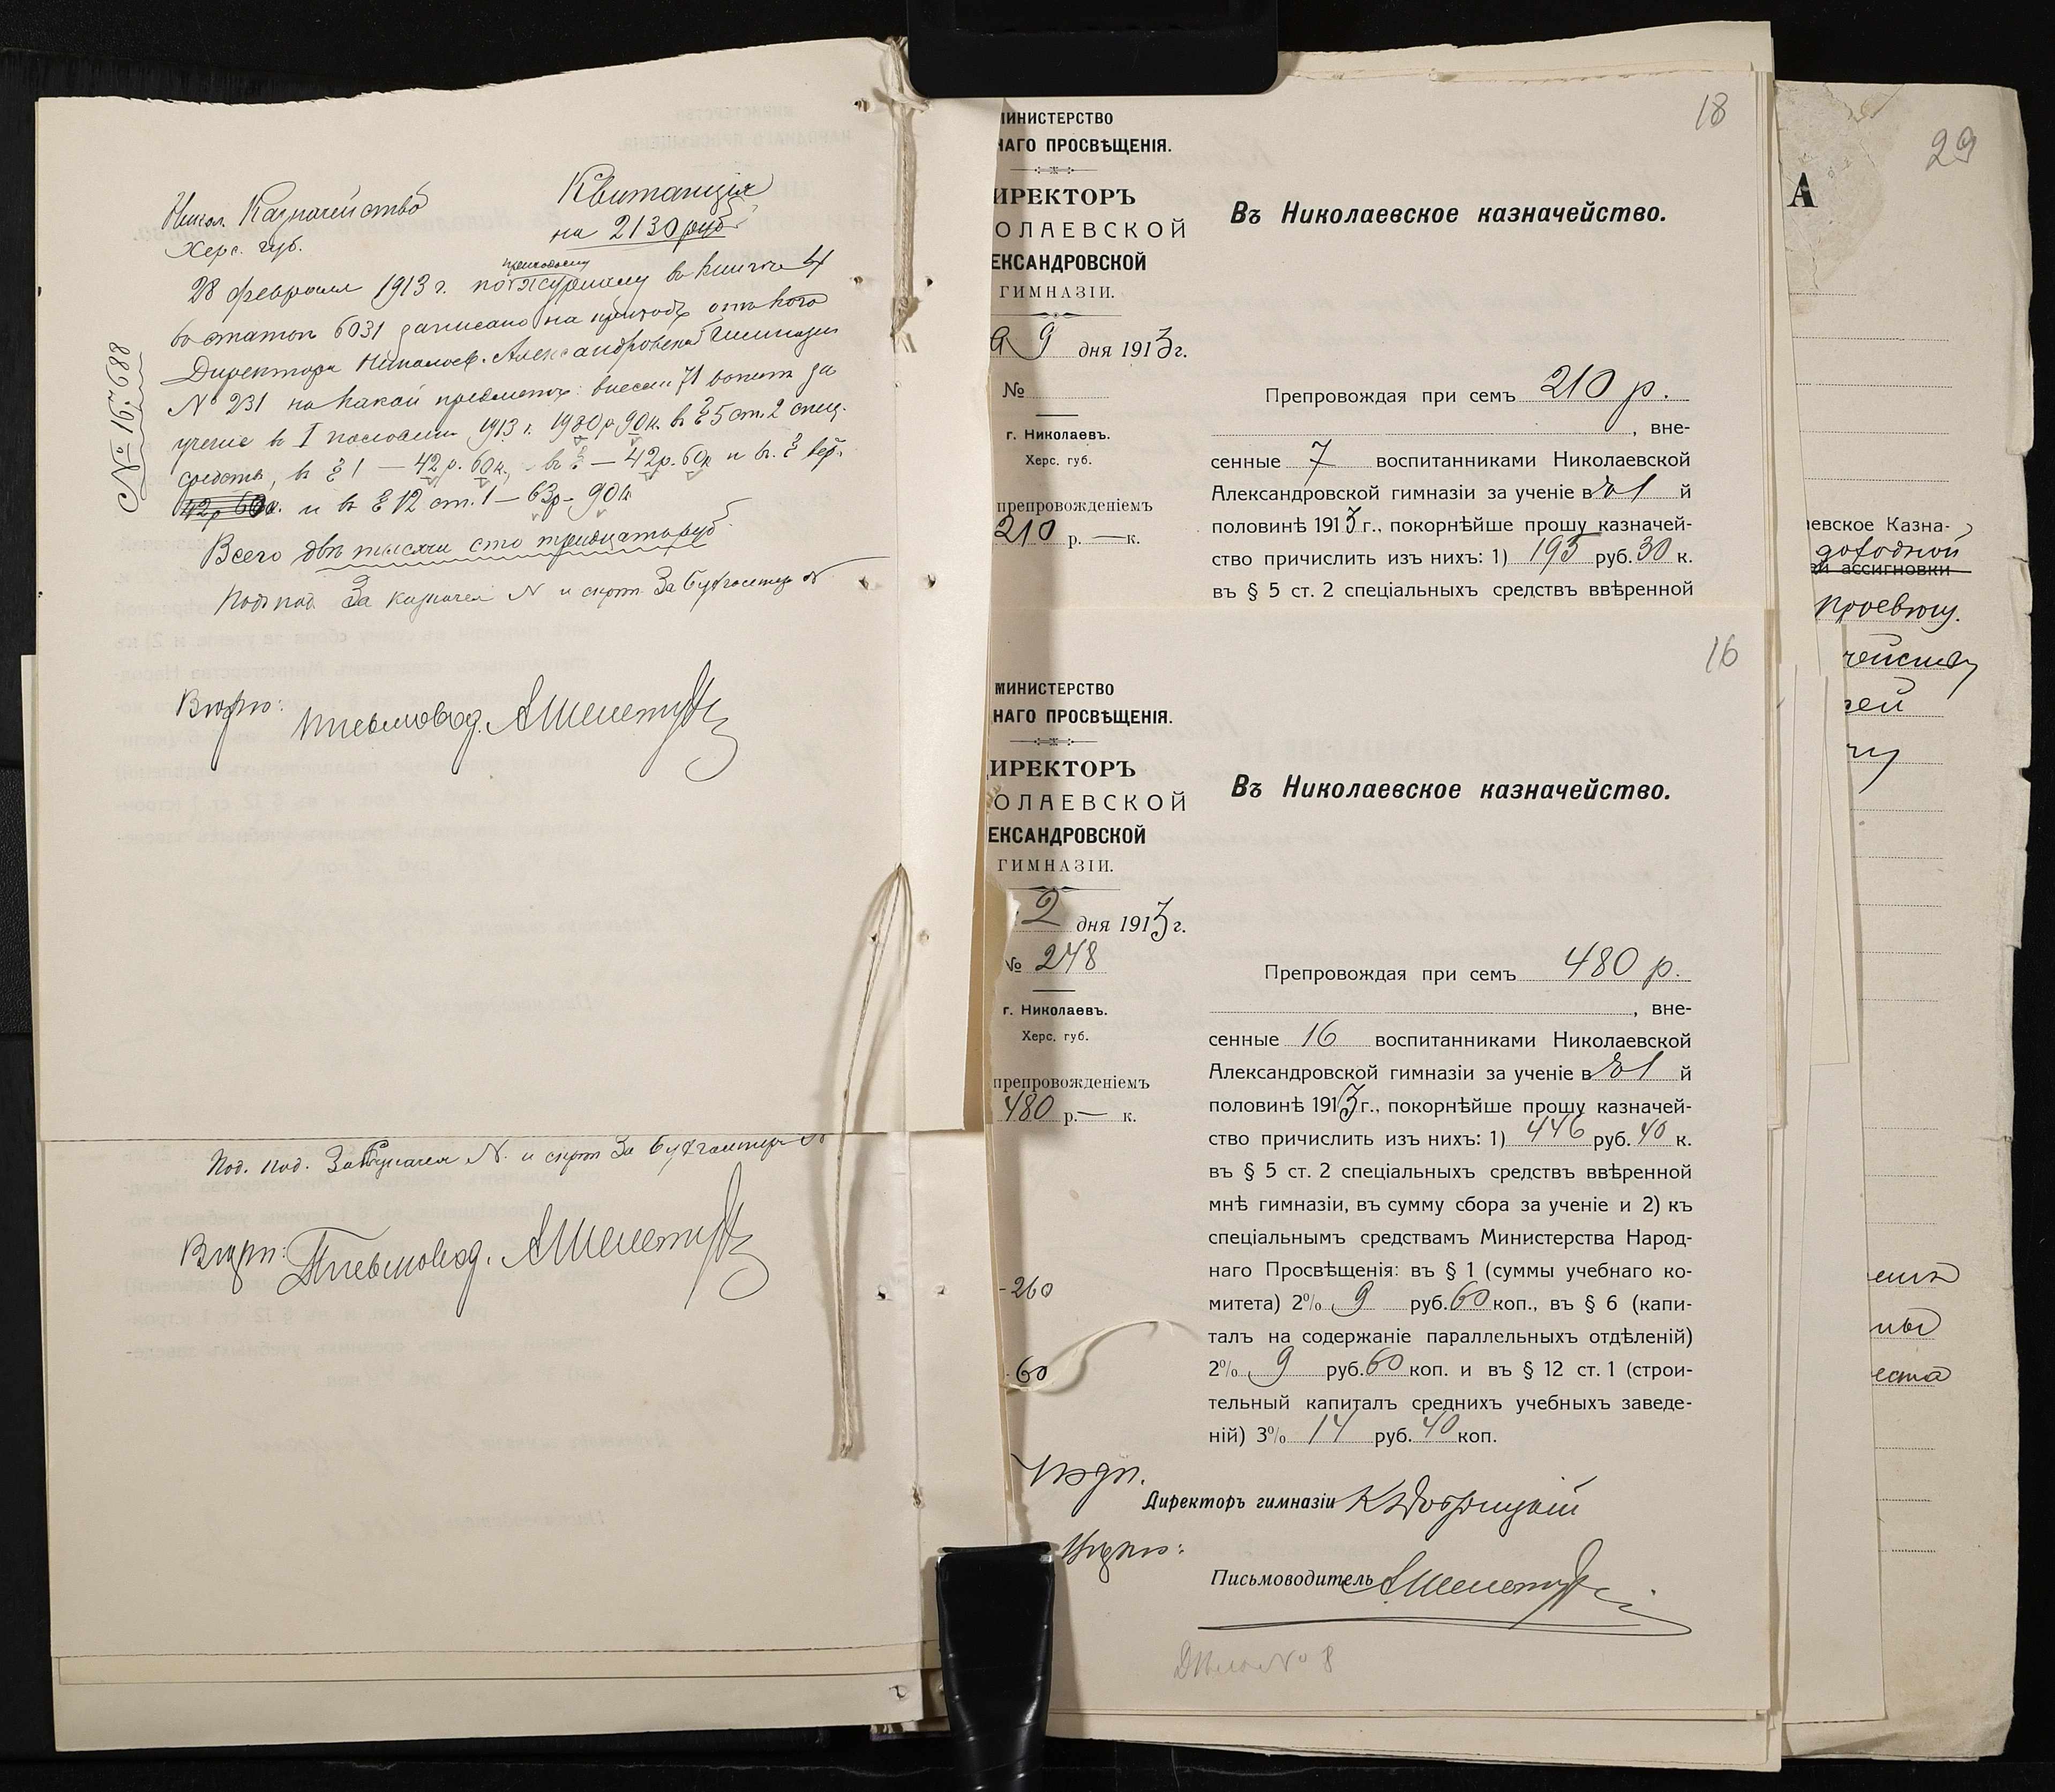 Никол. Казначейство
Херс. губ.
Квитанція
на 2130 руб.
№ 167688
приходному
28 февраля 1913 г. по журналу въ книгѣ 4
въ статью 6031 записано на приходъ отъ кого
Директора Николаев. Александровской Гимназіи
№ 231 на какой предметъ: внесен 71 воспит за
ученіе въ I половинѣ 1913 г. 1980 р 90 к. въ § 5 ст. 2 спец.
средствъ, въ § 1 — 42 р. 60 к., въ § — 42 р. 60 к и въ §
42 р 60 к. и въ § 12 ст. 1 — 63 р. 90 к
Всего двѣ тысячи сто тридцать руб
Подъ под За казначея N и скрѣп За бухгалтера N
Вѣрно: Письмовод.
Под. под. За Казначея N. и скрѣп За бухгалтера N
Вѣрно: Письмовод.
18
ИНИСТЕРСТВО
НАГО ПРОСВѢЩЕНІЯ.
ИРЕКТОРЪ
ОЛАЕВСКОЙ
ЕКСАНДРОВСКОЙ
ГИМНАЗІИ.
9 дня 1913 г.
№
г. Николаевъ.
Херс. губ.
препровожденіемъ
210 р. — к.
Въ Николаевское казначейство.
Препровождая при семъ 210 р.
, вне-
сенные 7 воспитанниками Николаевской
Александровской гимназіи за ученіе въ 1 й
половинѣ 1913 г., покорнѣйше прошу казначей-
ство причислить изъ нихъ: 1) 195 руб. 30 к.
въ § 5 ст. 2 спеціальныхъ средствъ ввѣренной
16
МИНИСТЕРСТВО
НАГО ПРОСВѢЩЕНІЯ.
ИРЕКТОРЪ
ОЛАЕВСКОЙ
ЕКСАНДРОВСКОЙ
ГИМНАЗІИ.
2 дня 1913 г.
№ 248
г. Николаевъ.
Херс. губ.
препровожденіемъ
480 р. — к.
-260
60
Въ Николаевское казначейство.
Препровождая при семъ 480 р.
, вне-
сенные 16 воспитанниками Николаевской
Александровской гимназіи за ученіе въ 1 й
половинѣ 1913 г., покорнѣйше прошу казначей-
ство причислить изъ нихъ: 1) 446 руб. 40 к.
въ § 5 ст. 2 спеціальныхъ средствъ ввѣренной
мнѣ гимназіи, въ сумму сбора за ученіе и 2) къ
спеціальнымъ средствамъ Министерства Народ-
наго Просвѣщенія: въ § 1 (суммы учебнаго ко-
митета) 2% 9 руб. 60 коп., въ § 6 (капи-
талъ на содержаніе параллельныхъ отдѣленій)
2% 9 руб. 60 коп. и въ § 12 ст. 1 (строи-
тельный капиталъ среднихъ учебныхъ заведе-
ній) 3% 14 руб. 40 коп.
Подп.
Директоръ гимназіи
Вѣрно:
Письмоводитель
№ 8
29
А
евское Казна-
доходной
ассигновки